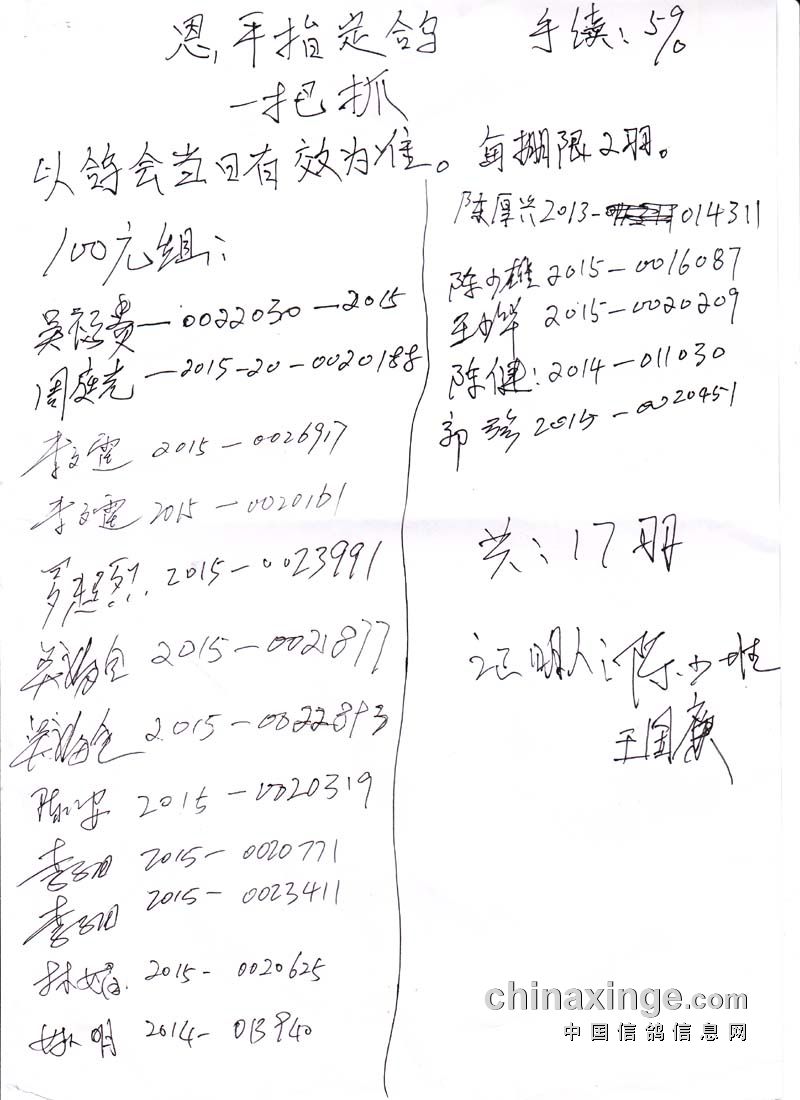 恩平指定鸽 手续:5%
一把抓
以鸽会当日有效为准。每棚限2羽。
100元组:
吴 —0022030—2015
周庭光—2015-20-0020188
李文霆 2015-0026917
李文霆 2015-0020161
罗超烈. 2015-0023991
吴海仓 2015-0021877
吴海仓 2015-0022893
陈 2015-0020319
李 2015- 0020771
李 2015- 0023411
林 2015- 0020625
明 2014- 013940
陈厚兴2013- 014311
陈少雄2015-0016087
王 2015-0020209
陈健:2014-011030
郭 2015-0020451
共:17羽
证明人:陈少雄
王国
chinaxinge.com
中国信鸽信息网